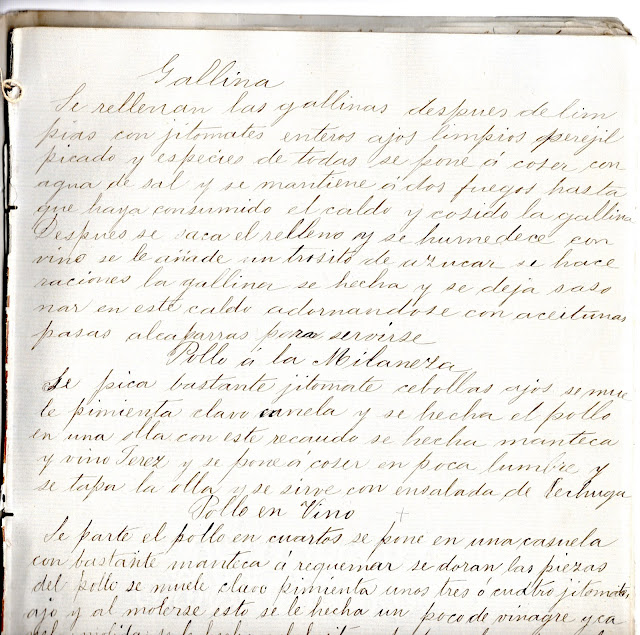 Gallina
Se rellenan las gallinas despues de lim
pias con jitomates enteros ajos limpios perejil
picado y especies de todas se pone á coser con
agua de sal y se mantiene á dos fuegos hasta
que haya consumido el caldo y cosido la gallina
Despues se saca el relleno y se humedece con
vino se le añade un trosito de azucar se hace
raciones la gallina se hecha y se deja saso
nar en este caldo adornandose con aceitunas
pasas alcaparras para servirse
Pollo á la Milaneza
Se pica bastante jitomate cebollas ajos se mue
le pimienta clavo canela y se hecha el pollo
en una olla con este recaudo se hecha manteca
y vino Jerez y se pone á coser en poca lumbre y
se tapa la olla y se sirve con ensalada de lechuga
Pollo en Vino
Se parte el pollo en cuartos se pone en una casuela
con bastante manteca á requemar se doran las piezas
del pollo se muele clavo pimienta unos tres o cuatro jitomates
ajo y al molerse esto se le hecha un poco de vinagre y ca